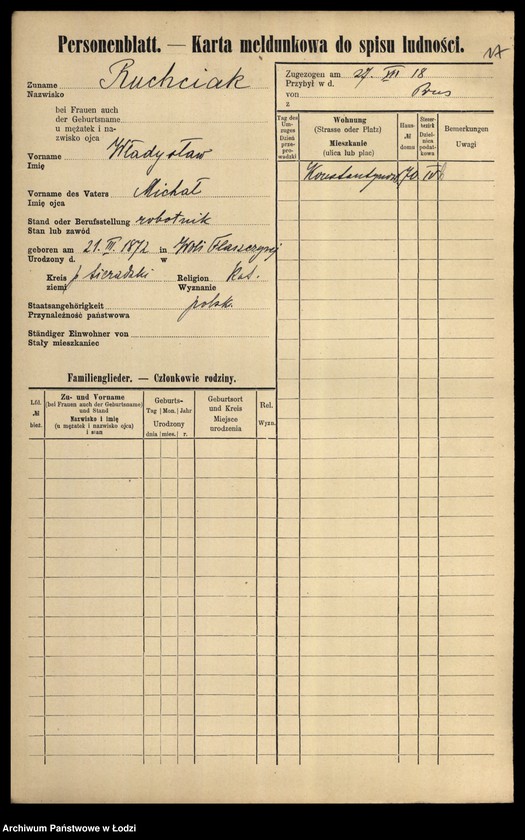 Personenblatt. — Karta meldunkowa do spisu ludności.
Zuname
Nazwisko
Ruchciak
bei Frauen auch
der Geburtsname
u mężatek i na-
zwisko ojca
Vorname
Imię
Władysław
Vorname des Vaters
Imię ojca
Michał
Stand oder Berufsstellung
Stan lub zawód
robotnik
geboren am 21. III. 1872 in Woli
Urodzony d. w
Kreis p. sieradzki Religion Kat.
ziemi Wyznanie
Staatsangehörigkeit polsk.
Przynależność państwowa
Ständiger Einwohner von
Stały mieszkaniec
Zugezogen am 27. VII 18
Przybył w d.
von Brus
z
Tag des Um-
zuges
Dzień
prze-
prowadzki
Wohnung
(Strasse oder Platz)
Mieszkanie
(ulica lub plac)
Haus-
№
domu
Steuer-
bezirk
Dziel-
nica
podat-
kowa
Bemerkungen
Uwagi
70 IV
Familienglieder. — Członkowie rodziny.
Lfd.
№
bież.
Zu- und Vorname
(bei Frauen auch der Geburtsname)
und Stand
Nazwisko i imię
(u mężatek i nazwisko ojca)
i stan
Geburts-
Tag Mon. Jahr
Urodzony
dnia mies. r.
Geburtsort
und Kreis
Miejsce
urodzenia
Rel.
Wyzn.
Archiwum Państwowe w Łodzi